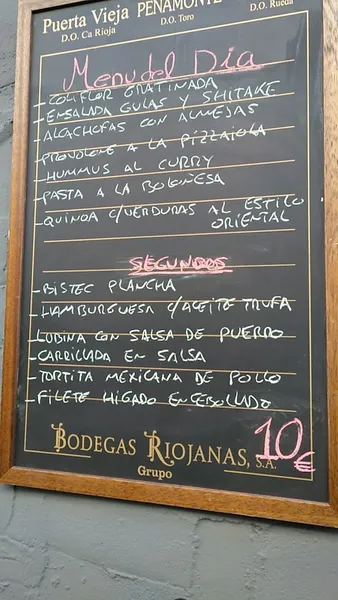 Puerta Vieja PEÑAMONTE
D.O. Ca Rioja D.O. Toro D.O. Rueda
Menu del Dia
- COLIFLOR GRATINADA
- ENSALADA GULAS Y SHITAKE
- ALCACHOFAS CON ALMEJAS
- PROVOLONE A LA PIZZAIOLA
- HUMMUS AL CURRY
- PASTA A LA BOLOÑESA
- QUINOA C/VERDURAS AL ESTILO
ORIENTAL
SEGUNDOS
- BISTEC PLANCHA
- HAMBURGUESA C/ACEITE TRUFA
- LUBINA CON SALSA DE PUERRO
- CARRILLADA EN SALSA
- TORTITA MEXICANA DE POLLO
- FILETE HIGADO ENCEBOLLADO
BODEGAS RIOJANAS, S.A.
Grupo
10€